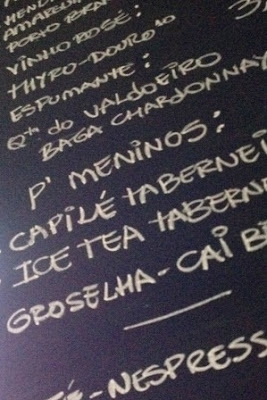 AMARGUI
PORTO BRA
VINHO ROSÉ:
THYRO-DOURO 10
ESPUMANTE:
Qta do VALDOEIRO
BAGA CHARDONNAY
P' MENINOS:
CAPILÉ TABERNEI
ICE TEA TABERNE
GROSELHA-CAI B
É-NESPRESS